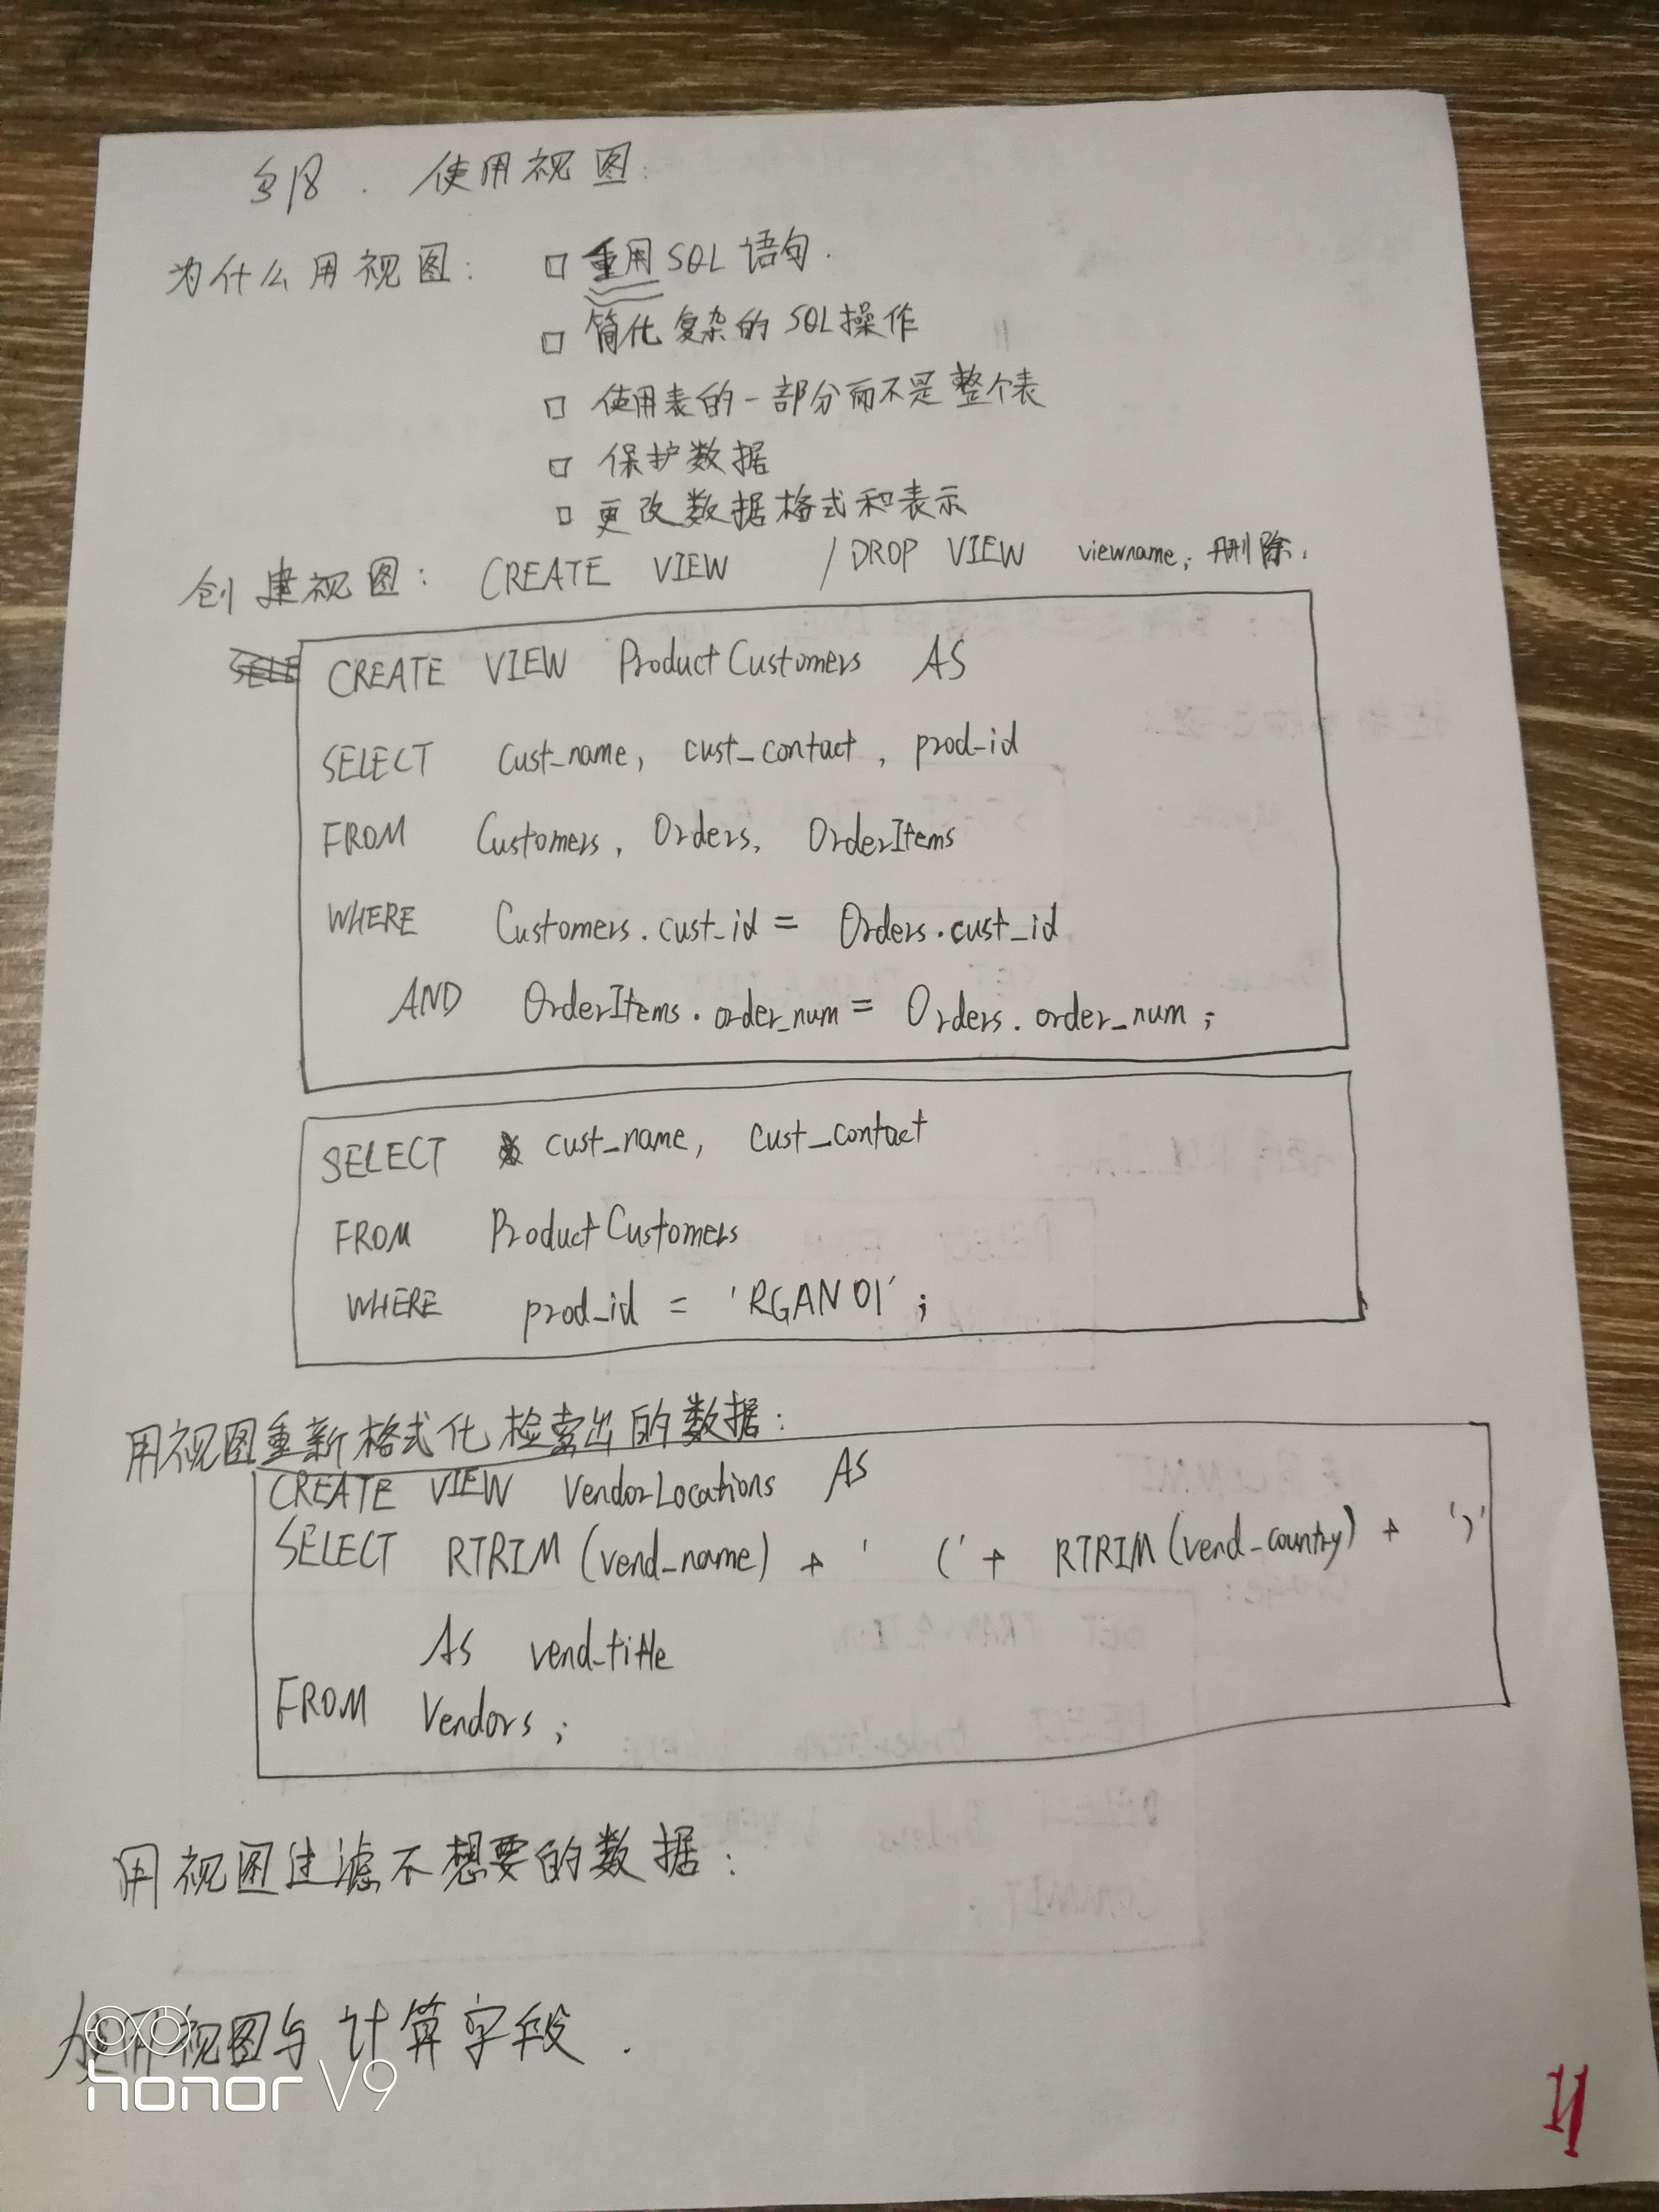 18. 使用视图:
为什么用视图: □ 重用SQL语句.
□ 简化复杂的SQL操作
□ 使用表的一部分而不是整个表
□ 保护数据
□ 更改数据格式和表示
创建视图: CREATE VIEW / DROP VIEW viewname; 删除.
CREATE VIEW ProductCustomers AS
SELECT cust_name, cust_contact, prod_id
FROM Customers, Orders, OrderItems
WHERE Customers.cust_id = Orders.cust_id
AND OrderItems.order_num = Orders.order_num;
SELECT cust_name, cust_contact
FROM ProductCustomers
WHERE prod_id = 'RGAN01';
用视图重新格式化检索出的数据:
CREATE VIEW VendorLocations AS
SELECT RTRIM(vend_name) + ' (' + RTRIM(vend_country) + ')'
AS vend_title
FROM Vendors;
用视图过滤不想要的数据:
使用视图与计算字段.
honor V9
11